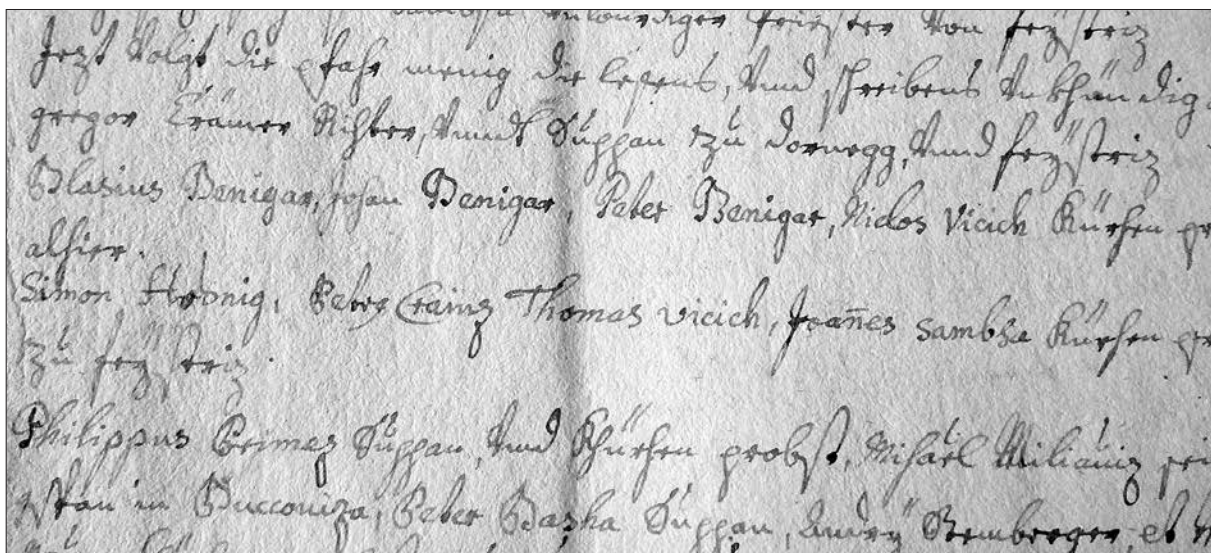 Priester von feystriz
Jezt Volgt die pfahr menig die lesens, Vnd schreibens Vnkhündig
gregor Crämer Richter, Vnndt Suppan zu dornegg, Vnnd feystriz
Blasius Benigar, Johan Benigar, Peter Benigar, Niclos Vicich Kürhen pr
alhier.
Simon Hronig, Peter Crainz Thomas vicich, Joañes Sambsa Kürhen pr
zu feystriz.
Philippus Primez Suppan, Vnd Khürhen probst, Mihäel Miliäviz
in Bucconiza, Peter Bazha Suppan, Andrÿ Stemberger et